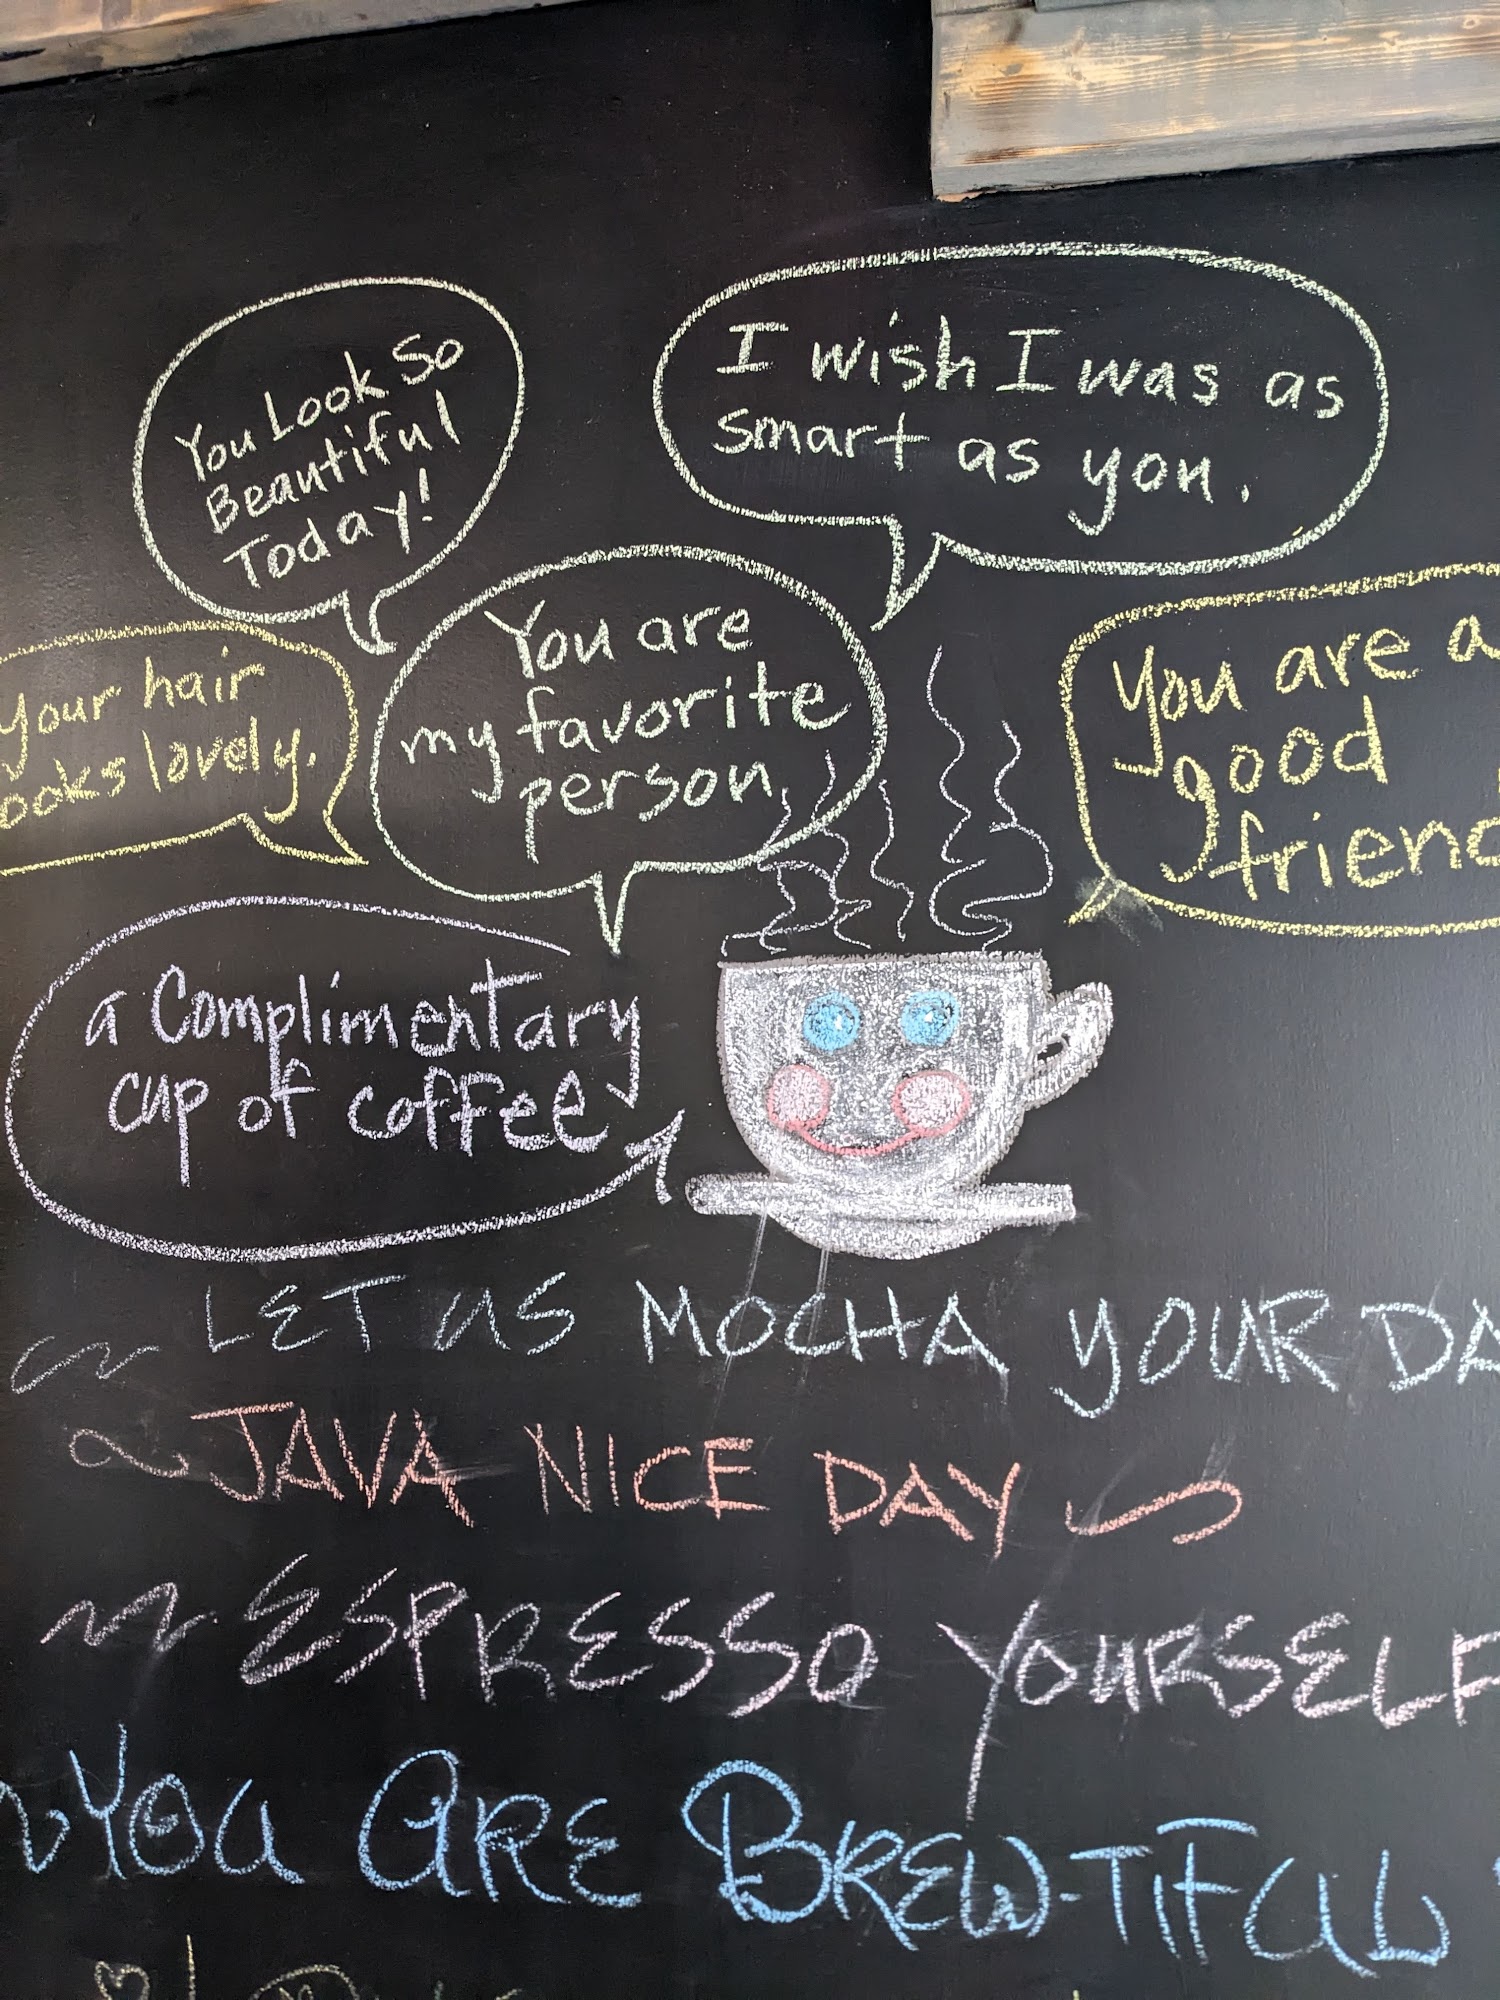 You Look So
Beautiful
Today!
I wish I was as
smart as you.
your hair
ooks lovely.
You are
my favorite
person.
You are a
good
friend
a Complimentary
cup of coffee
LET US MOCHA YOUR DA
JAVA NICE DAY
ESPRESSO YOURSELF
YOU ARE BREW-TIFUL